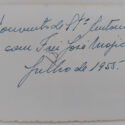 Convento de Stº Antonio
com Frei José Mojica
Julho de 1955.